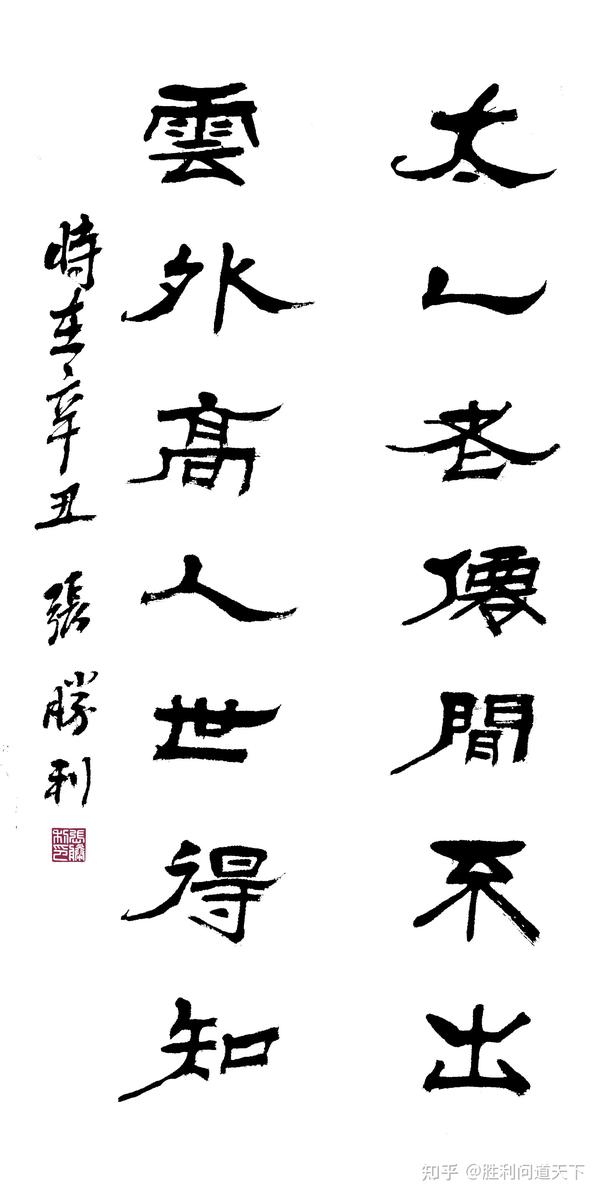 太乙老僊閒不出
雲外髙人世得知
時在辛丑 張勝利
張勝利印
知乎 @胜利问道天下